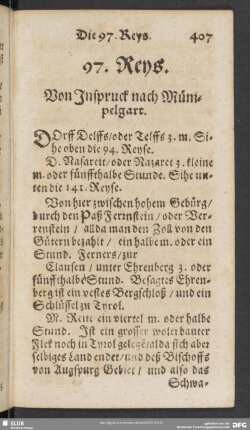 Die 97. Reys. 407
97. Reys.
Von Inspruck nach Müm-
pelgart.
DOrff Delffs/oder Telffs 3. m. Si-
he oben die 94. Reyse.
D. Nasareit/oder Nazaret 3. kleine
m. oder fünffthalbe Stunde. Sihe un-
ten die 141. Reyse.
Von hier zwischen hohem Gebürg/
durch den Paß Fernstein / oder Ver-
renstein / allda man den Zoll von den
Gütern bezahlt / ein halbe m. oder ein
Stund. Ferners/zur
Clausen / unter Ehrenberg 3. oder
fünffthalbe Stund. Besagtes Ehren-
berg ist ein vestes Bergschloß / und ein
Schlüssel zu Tyrol.
M. Reite ein viertel m. oder halbe
Stund. Ist ein grosser wolerbauter
Fleck noch in Tyrol gelegē/alda sich aber
selbiges Land endet/und deß Bischoffs
von Augspurg Gebiet / und also das
Schwa-